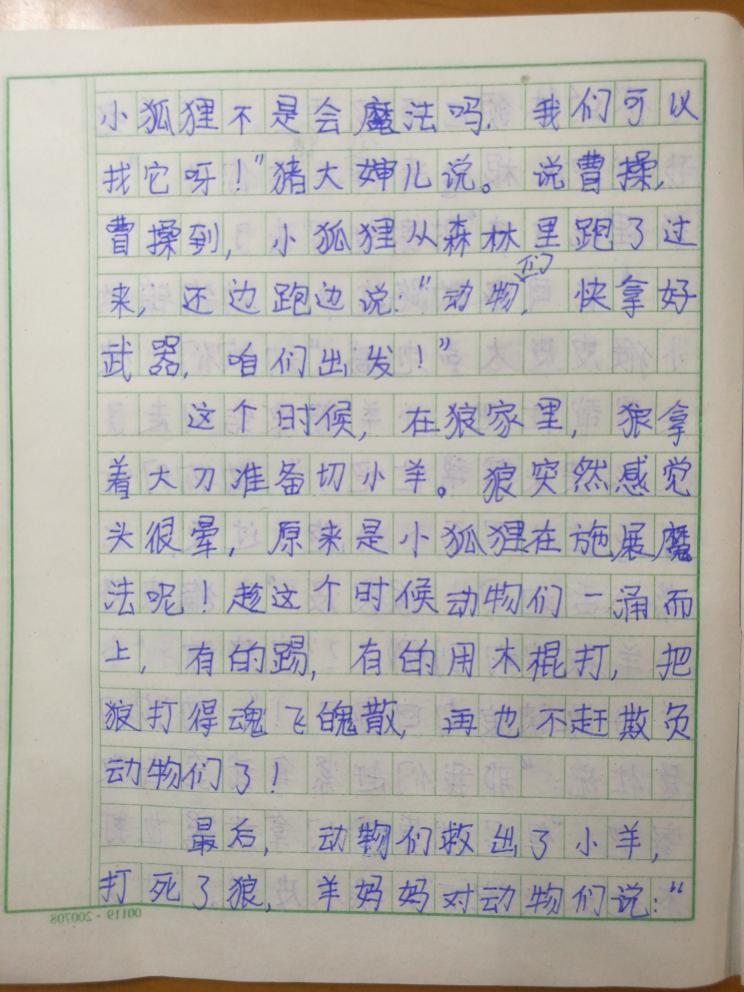 小狐狸不是会魔法吗.我们可以
找它呀！”猪大婶儿说。说曹操，
曹操到，小狐狸从森林里跑了过
来，还边跑边说：“动物们，快拿好
武器，咱们出发！”
这个时候，在狼家里，狼拿
着大刀准备切小羊。狼突然感觉
头很晕，原来是小狐狸在施展魔
法呢！趁这个时候动物们一涌而
上，有的踢，有的用木棍打，把
狼打得魂飞魄散，再也不赶欺负
动物们了！
最后，动物们救出了小羊，
打死了狼，羊妈妈对动物们说：“
00119·200708